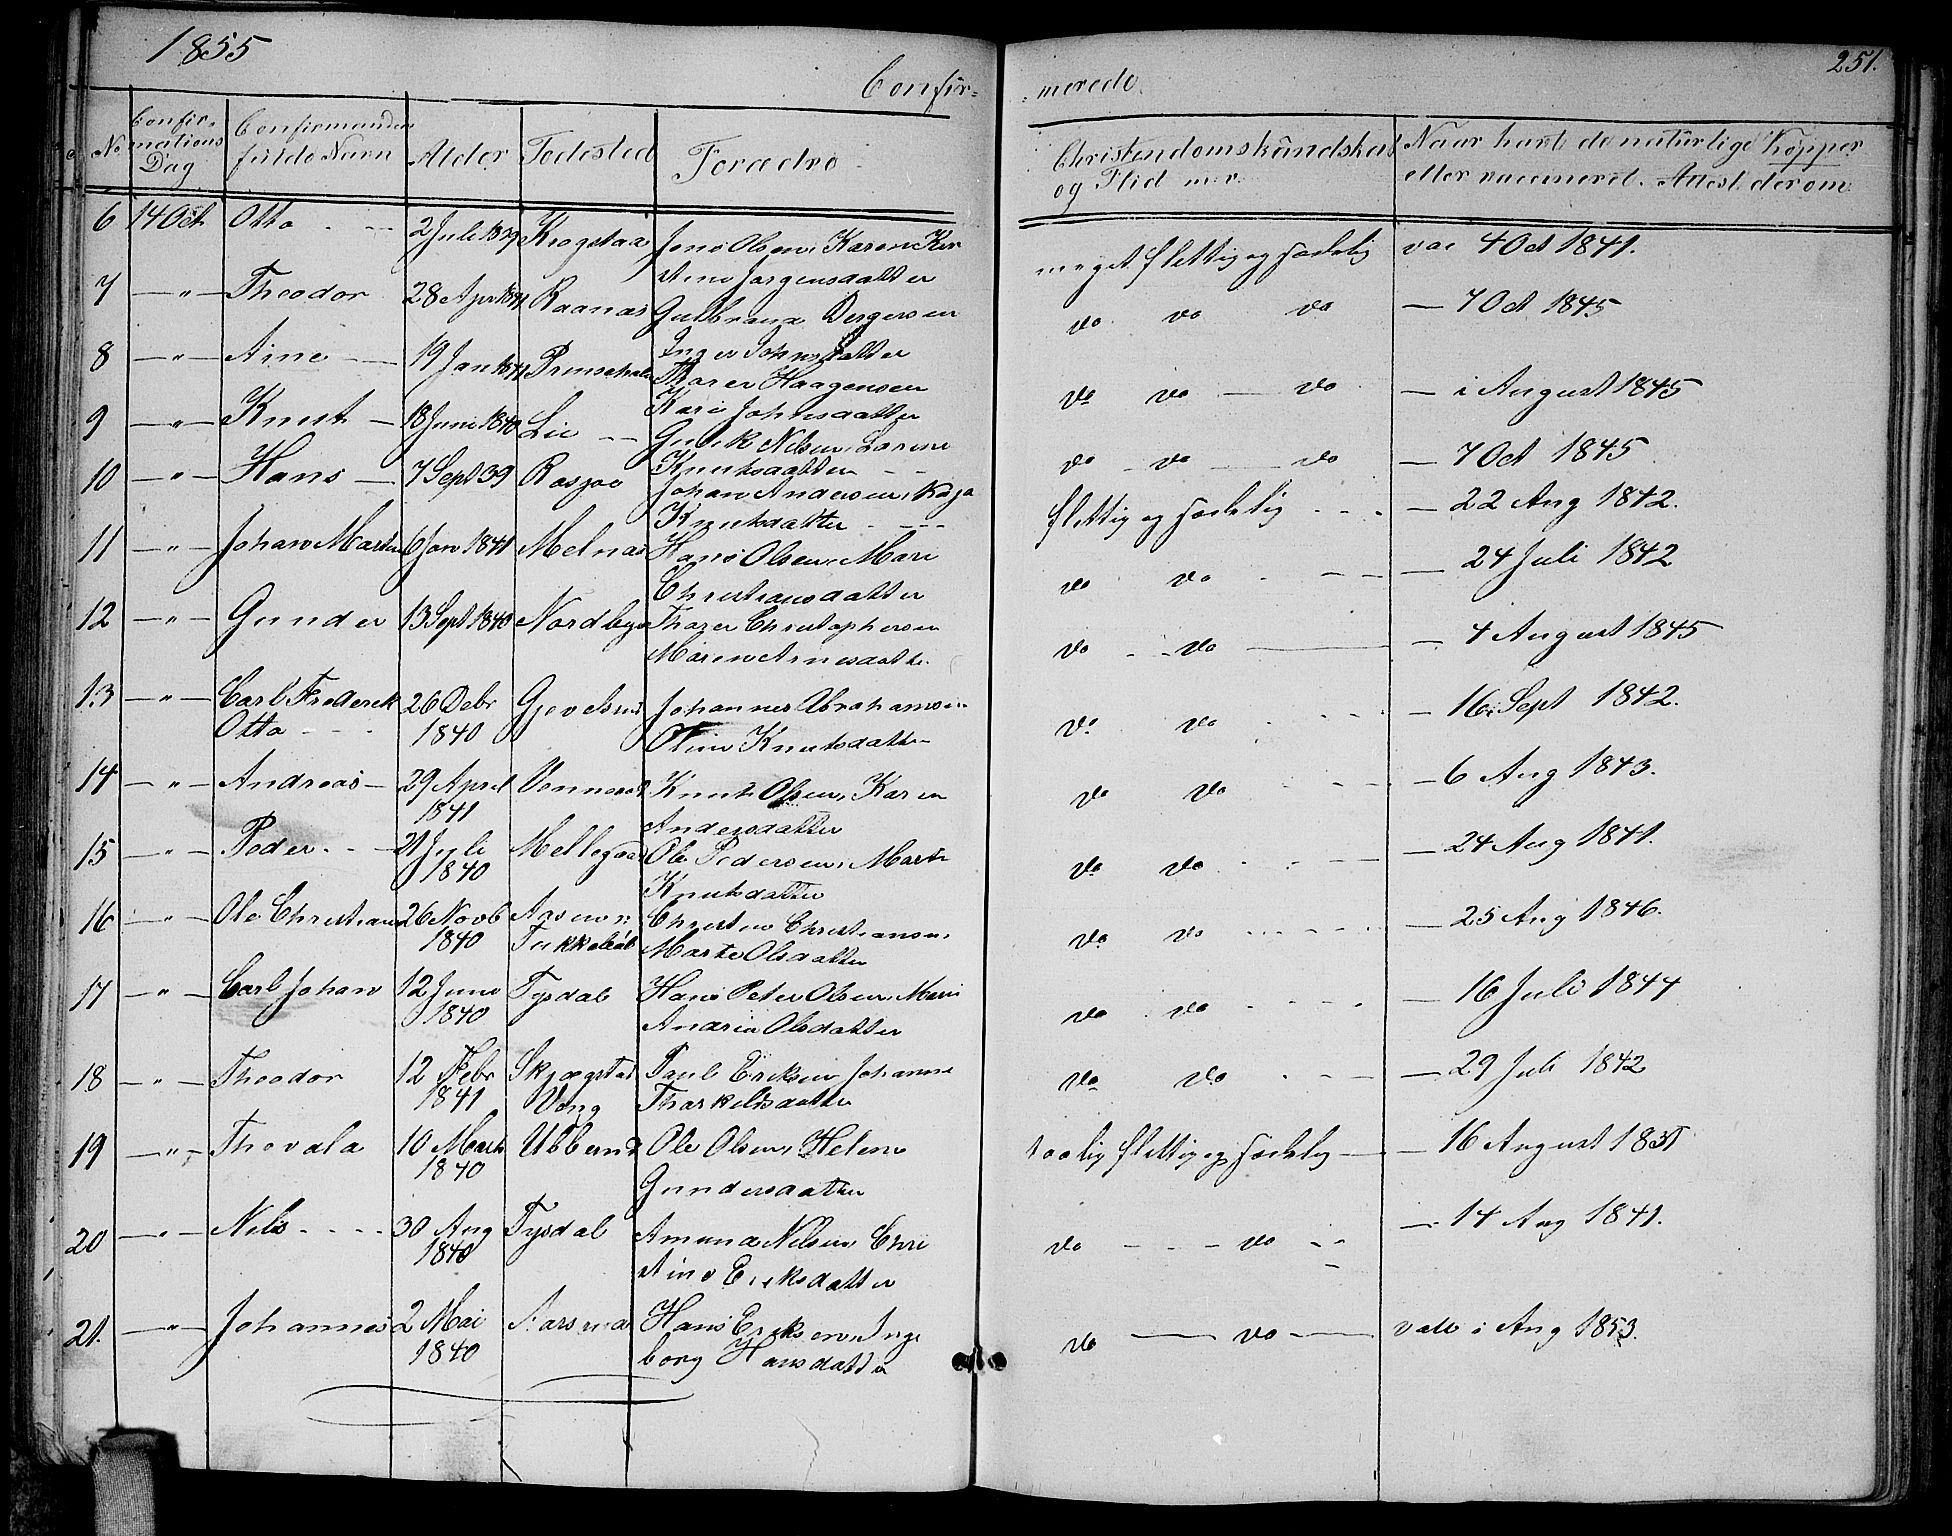 1855
251.
Confir= =merede.
No
Confir-
mations
Dag
Confirmandens
fulde Navn
Alder
Fødested
Forædre
Christendomskundskab
og Flid m.v.
Naar havt de naturlige Kopper
eller vaccineret. Attest derom
6 14 Oct Otto - - 2 Juli 1839 Krogstaa Jens Olsen, Karen Kir
stine Jørgensdatter
meget flittig og sædelig vac 4 Oct 1841.
7 — " — Theodor 28 Apr 1841 Raanas Gulbrand
Inger Johnsdatter
do do do — 7 Oct 1845
8 — " — Aine — 19 Jan 1841 Thorer Haagensen
Kari Johnsdatter
do do — do — i August 1845
9 — " — Knut — 18 Juni 1840 Lie - - Nilsen, Lorine
Knutsdatter - -
do — do — do — 7 Oct 1845
10 — " — Hans — 7 Sept 39 Rasjøe Johan Andersen, Kaja
Knutsdatter - - -
flittig og sædelig - - - — 22 Aug 1842.
11 — " — Johan Martin 6 Jan 1841 Melnas Hans Olsen, Mari
Christiansdatter
do do - - - — 24 Juli 1842
12 — " — Gunder 13 Sept 1840 Nordbye Thorer Christophersen
Maren Arnesdatte
do - - do — — 4 August 1845
13 — " — Carl Frederik 26 Debr Gjevelsrud Johannes Abrahamsen
Otto - - - 1840 Oline Knutsdatter
do do - - - — 16 Sept 1842.
14 — " — Andreas — 29 April Knut Olsen, Karen
1841 Andersdatter
do do - - - — 6 Aug 1843.
15 — " — Peder - - 21 Juli Mellegaar Ole Pedersen, Marte
1840 Knutsdatter
do do - - - — 24 Aug 1841.
16 — " — Ole Christian 26 Novb Christen Christiansen,
1840 Marte Olsdatter
do do - - - - — 25 Aug 1846.
17 — " — Carl Johan 12 Juno Tysdal Hans Peter Olsen, Mari
1840 Andrea Olsdatter
do do - - - - — 16 Juli 1844
18 — " — Theodor 12 Febr Skjøgstad Paul Eriksen Johanne
1841 Vang Tharkeldsdatter
do do - - - — 29 Juli 1842
19 — " — Thovala 10 Marts Ubberud Ole Olsen, Helene
1840 Gundersdatter
taalig flittig og sædelig — — 16 August 1851
20 — " — Nils - - - - 30 Aug Tysdal Amund Nilsen, Chri
1840 stine Eriksdatter
do - - - do - - — 14 Aug 1841.
21. — " — Johannes 2 Mai Aarsnæs Hans Eriksen, Inge
1840 borg Hansdatter
do — do — vacc i Aug 1853.